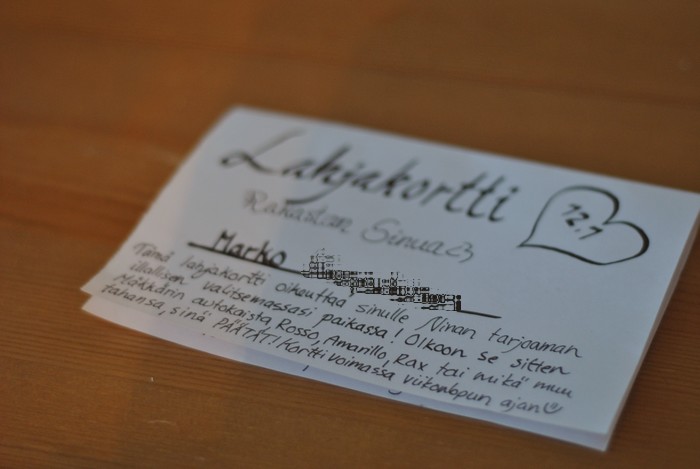 Lahjakortti
12.7
Rakastan Sinua
Marko
Tämä lahjakortti oikeuttaa sinulle Ninan tarjoaman
illallisen valitsemassasi paikassa! Olkoon se sitten
Mäkkärin autokaista, Rosso, Amarillo, Rax tai mikä muu
tahansa, sinä PÄÄTÄT! Kortti voimassa viikonlopun ajan